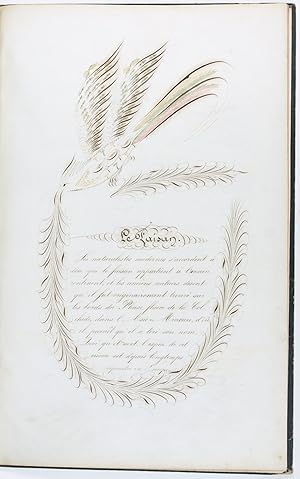 Le Faisan.
Les naturalistes modernes s'accordent à
dire que le faisan appartient à l'ancien
continent, et les anciens auteurs disent
que il fut originairement trouvé sur
les bords du Phase, fleuve de la Col
chide, dans l'Asie Mineure, d'où
il paraît qu'il a tiré son nom.
Quoi qu'il soit, l'espèce de cet
oiseau est depuis longtemps
répandue en